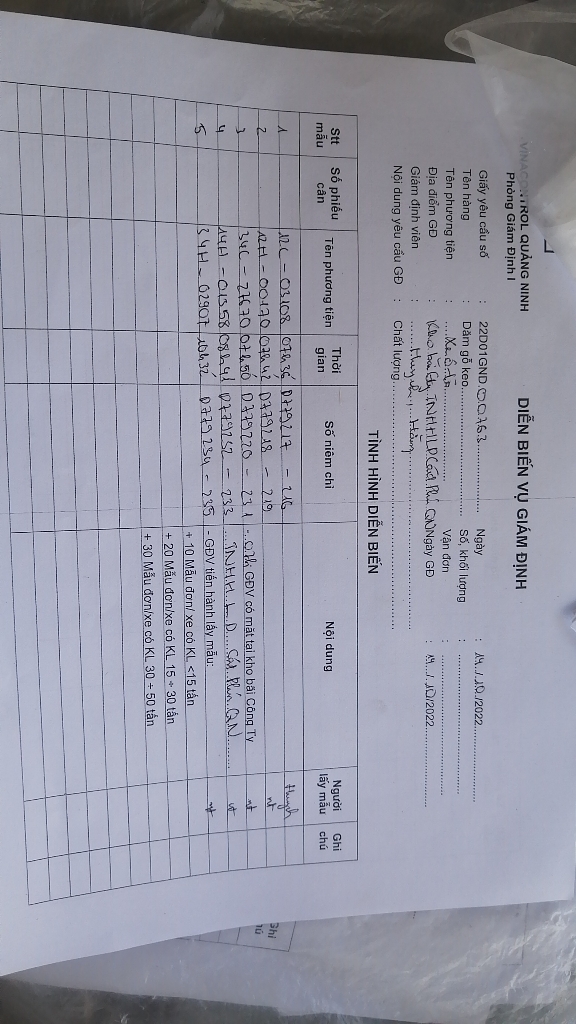 VINACONTROL QUẢNG NINH
Phòng Giám Định I
DIỄN BIẾN VỤ GIÁM ĐỊNH
Giấy yêu cầu số : 22D01GND.00763 Ngày : 14/10/2022
Tên hàng : Dăm gỗ keo Số, khối lượng :
Tên phương tiện : Xe ô tô Vận đơn :
Địa điểm GĐ : Kho bãi Cty TNHH LD Cái Lân QN Ngày GĐ : 14/10/2022
Giám định viên : Huynh, Hồng
Nội dung yêu cầu GĐ : Chất lượng
TÌNH HÌNH DIỄN BIẾN
Stt mẫu Số phiếu cân Tên phương tiện Thời gian Số niêm chì Nội dung Người lấy mẫu Ghi chú
1 12C - 03108 07h36 D779217 - 216 Huynh
2 12H - 00170 07h42 D779218 - 219 nt
3 34C - 27670 07h50 D779220 - 231 - 07h GĐV có mặt tại kho bãi Công Ty nt
4 14H - 01358 08h41 D779232 - 233 TNHH LD QN nt
5 34H - 02907 10h32 D779234 - 235 - GĐV tiến hành lấy mẫu: nt
+ 10 Mẫu đơn/ xe có KL <15 tấn
+ 20 Mẫu đơn/xe có KL 15 ÷ 30 tấn
+ 30 Mẫu đơn/xe có KL 30 ÷ 50 tấn